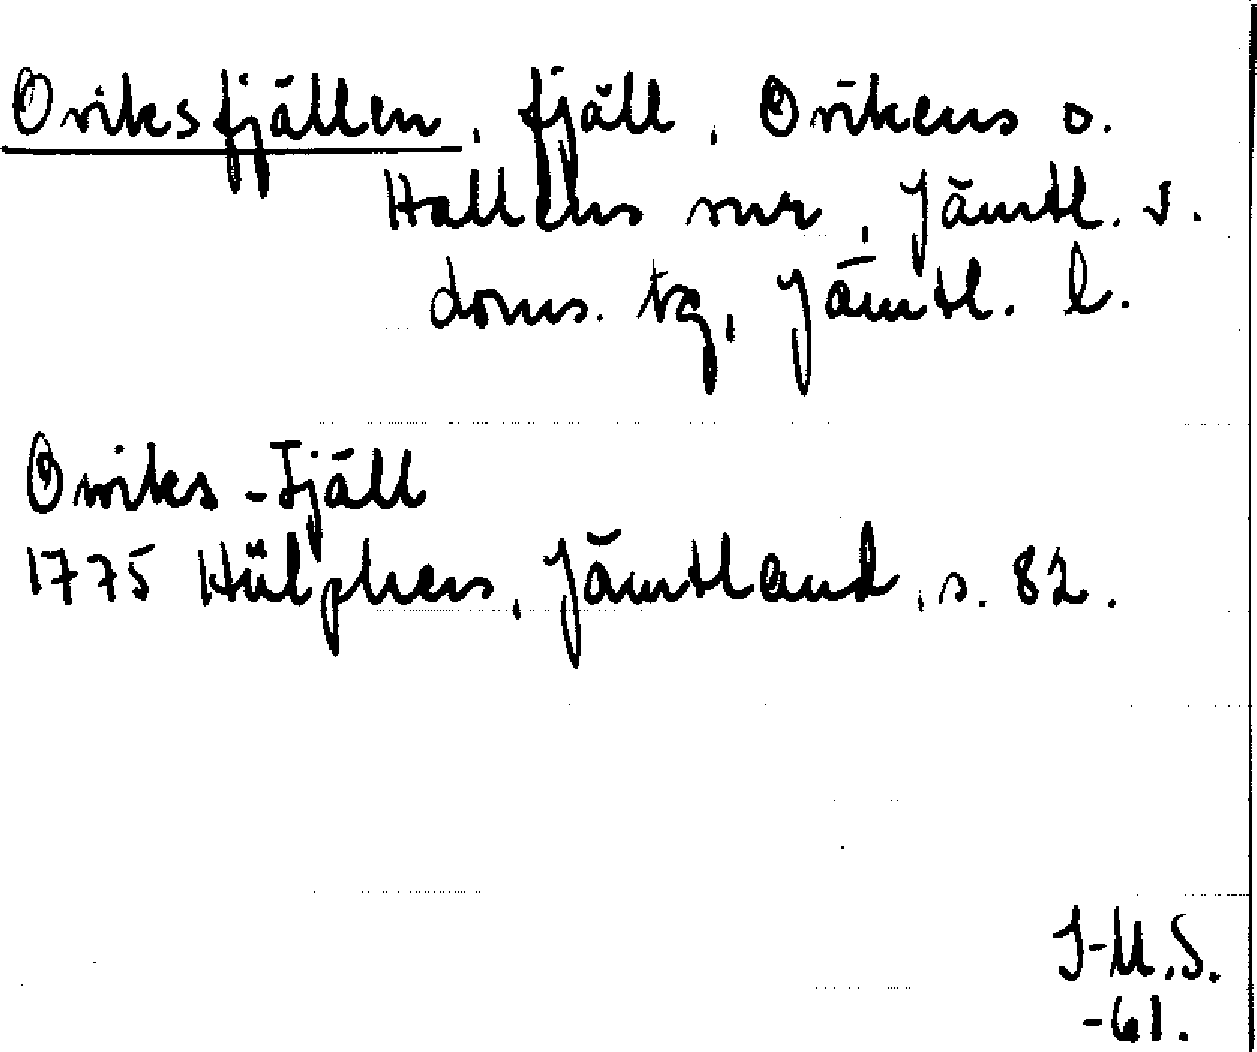 Oviksfjällen, fjäll, Ovikens o.
Hallens snr, Jämtl. v.
doms. tg, Jämtl. l.
Owiks-Fjäll
1775 Hülphers, Jämtland, s. 82.
I-M.S.
-61.